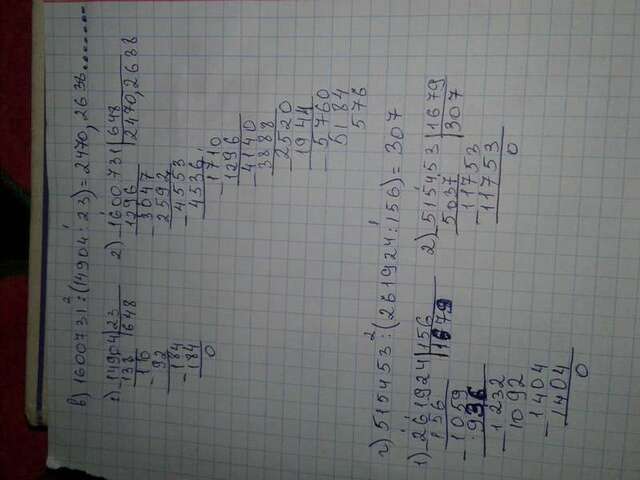 в) 1600731:(14904:23)=2470,2638........
2 1
1) 14904 23
138 648
110
92
184
184
0
2) 1600731 648
1296 2470,2638
3047
2592
4553
4536
1710
1296
4140
3888
2520
1944
5760
5184
576
г) 515453:(261924:156)=307
2 1
1) 261924 156
156 1679
1059
936
1232
1092
1404
1404
0
2) 515453 1679
5037 307
11753
11753
0